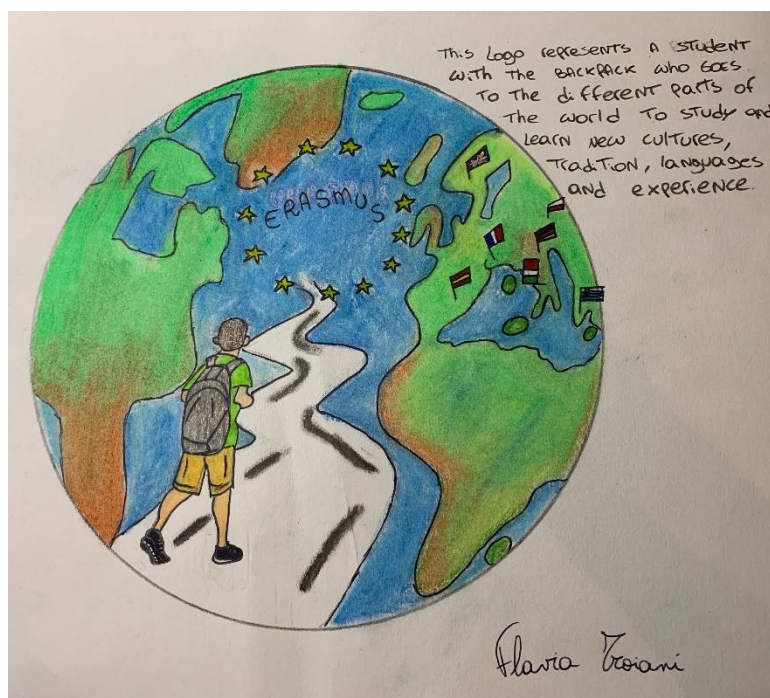 This Logo represents A STUDENT
with THE BACKPACK who GOES
To The different parts of
The world To STudy and
Learn new cultures,
TradiTion, languages
and experience.
ERASMUS
Flavia Troiani